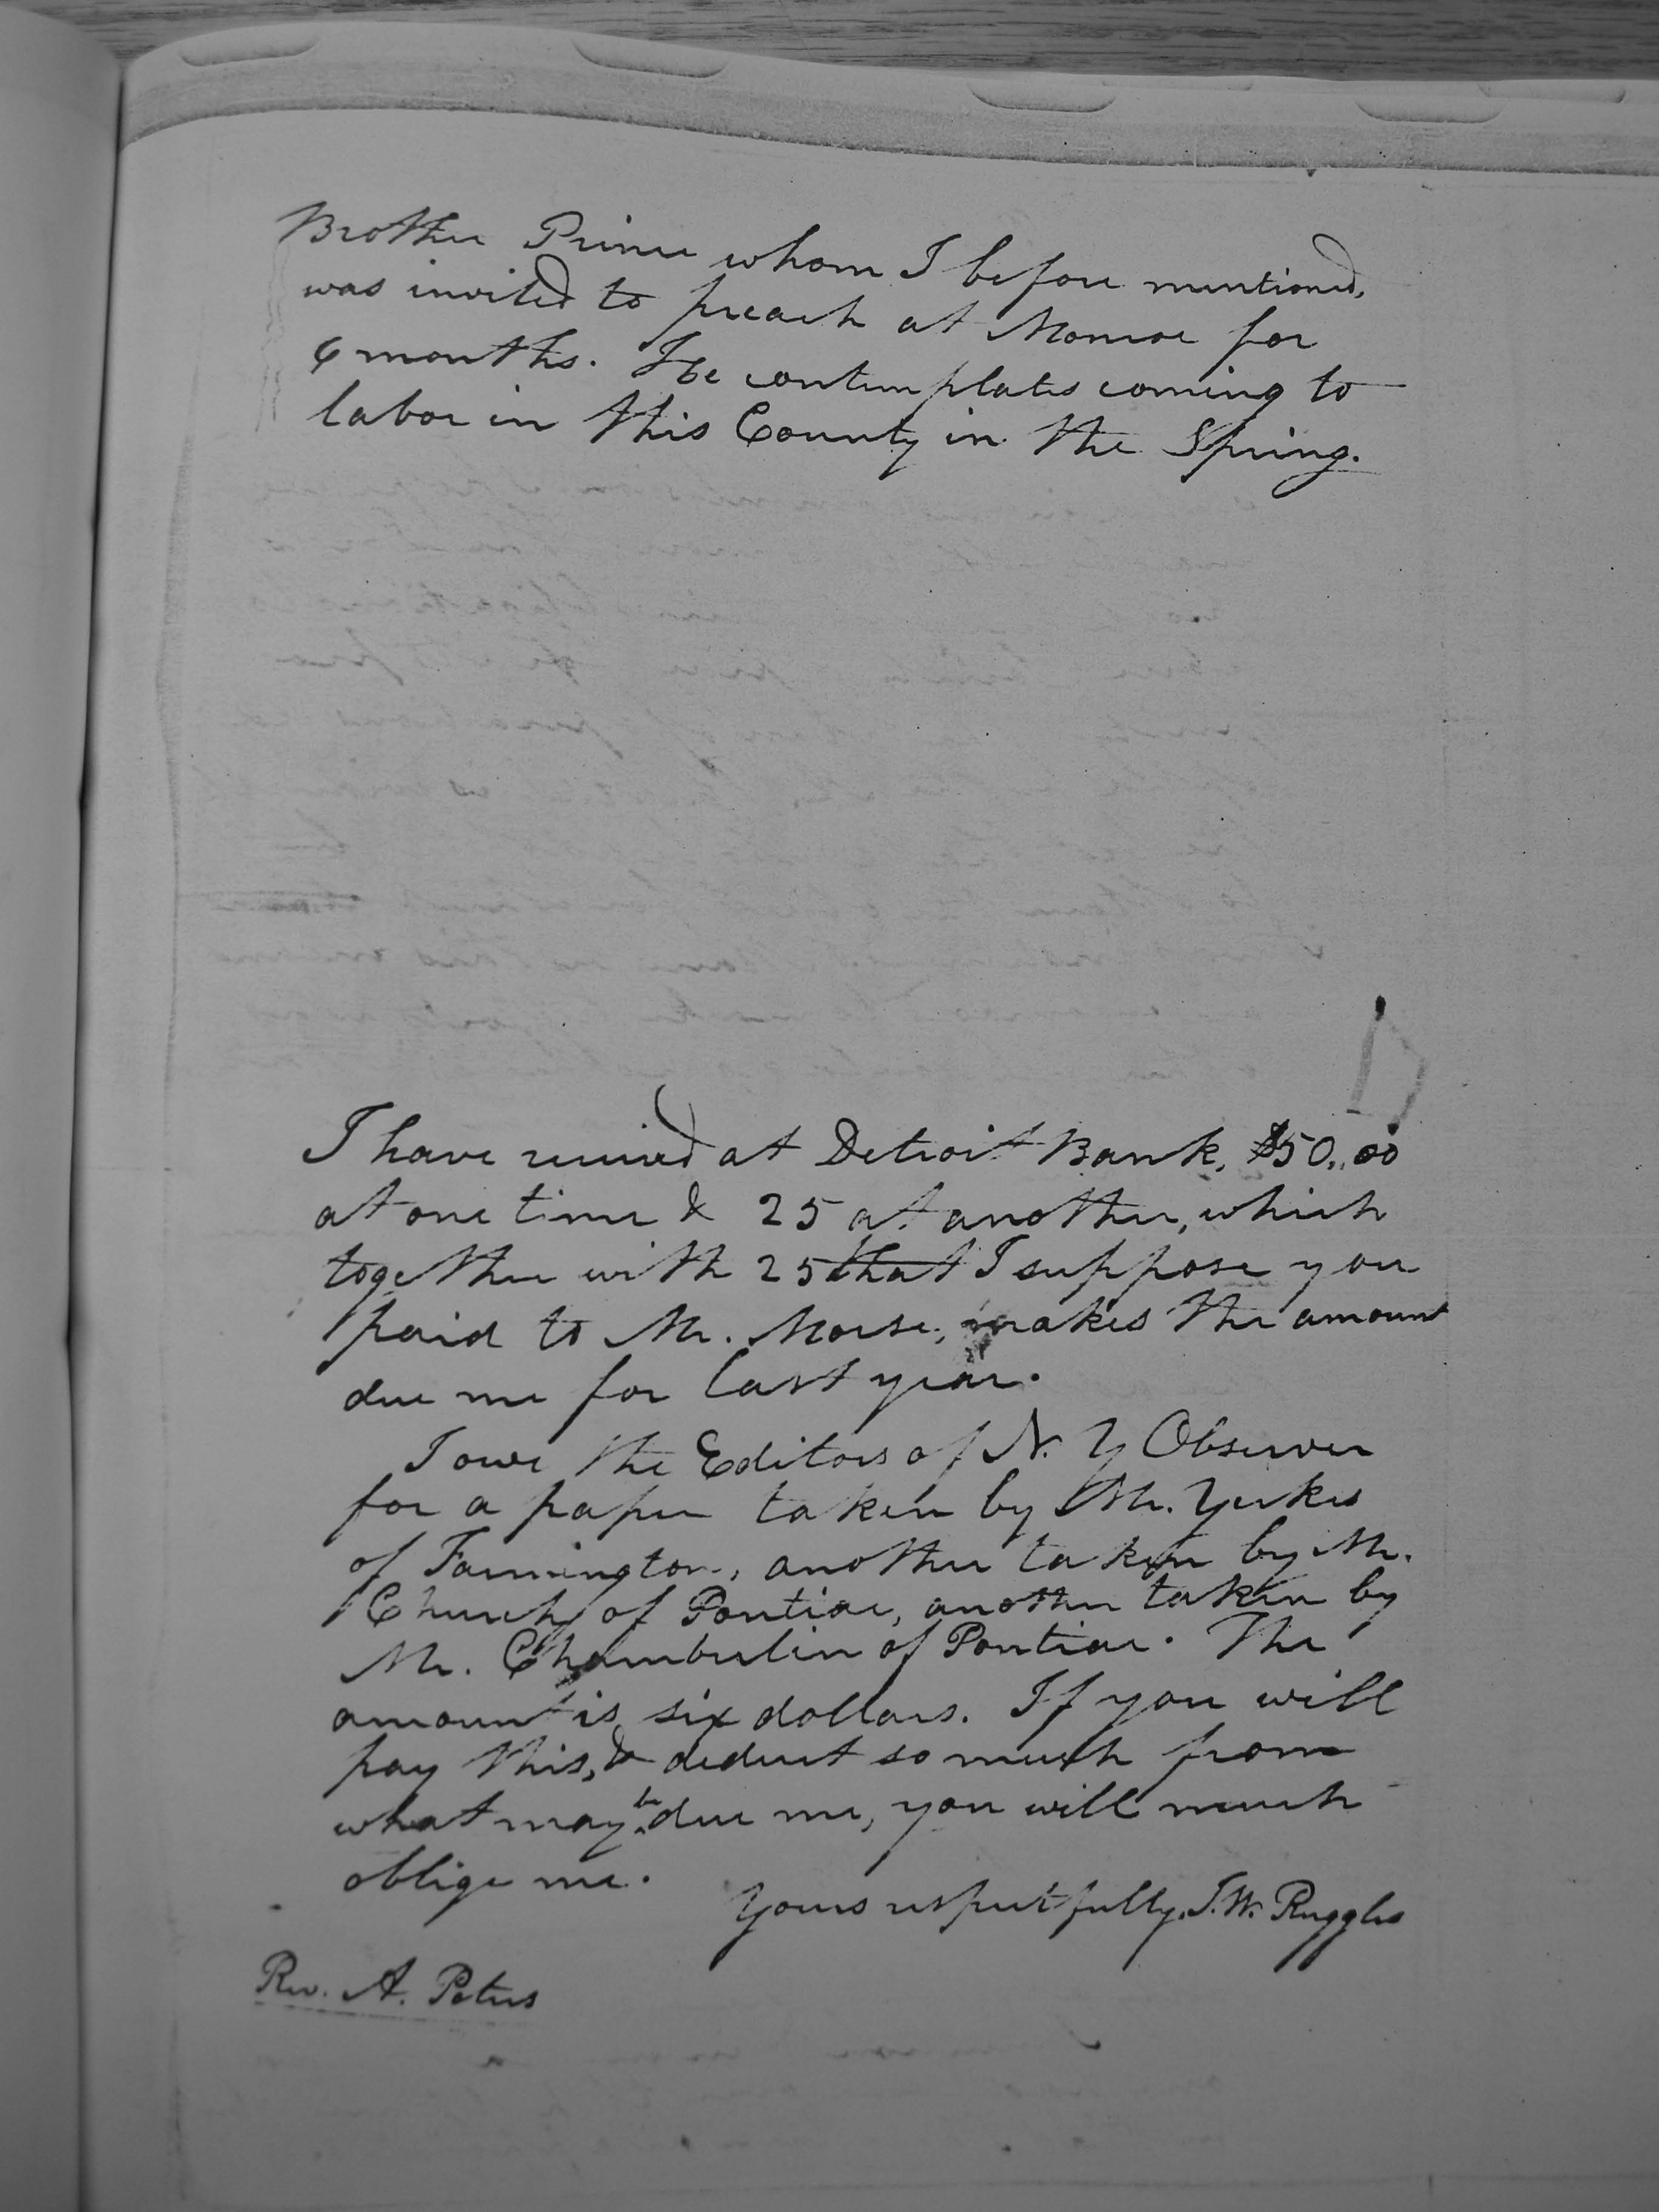 Brother Prince whom I before mentioned,
was invited to preach at Monroe for
6 months. He contemplates coming to
labor in this County in the Spring.
I have received at Detroit Bank, $50,,00
at one time & 25 at another, which
together with 25 that I suppose you
paid to Mr. Morse, makes the amount
due me for last year.
I owe the Editors of N. Y Observer
for a paper taken by Mr. Yerkes
of Farmington, another taken by Mr.
Church of Pontiac, another taken by
Mr. Chamberlin of Pontiac. The
amount is six dollars. If you will
pay this, & deduct so much from
what may be due me, you will much
oblige me.
Yours respectfully, I. W. Ruggles
Rev. A. Peters